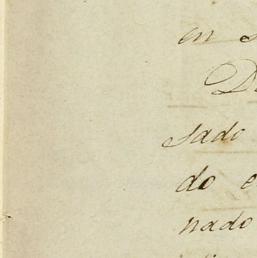 en s
D
sado
do e
nado